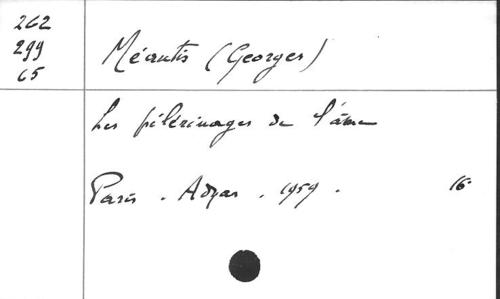 262
299
65
Méautis (Georges)
Les pèlerinages de l'âme
Paris . Adyar . 1959 .
16